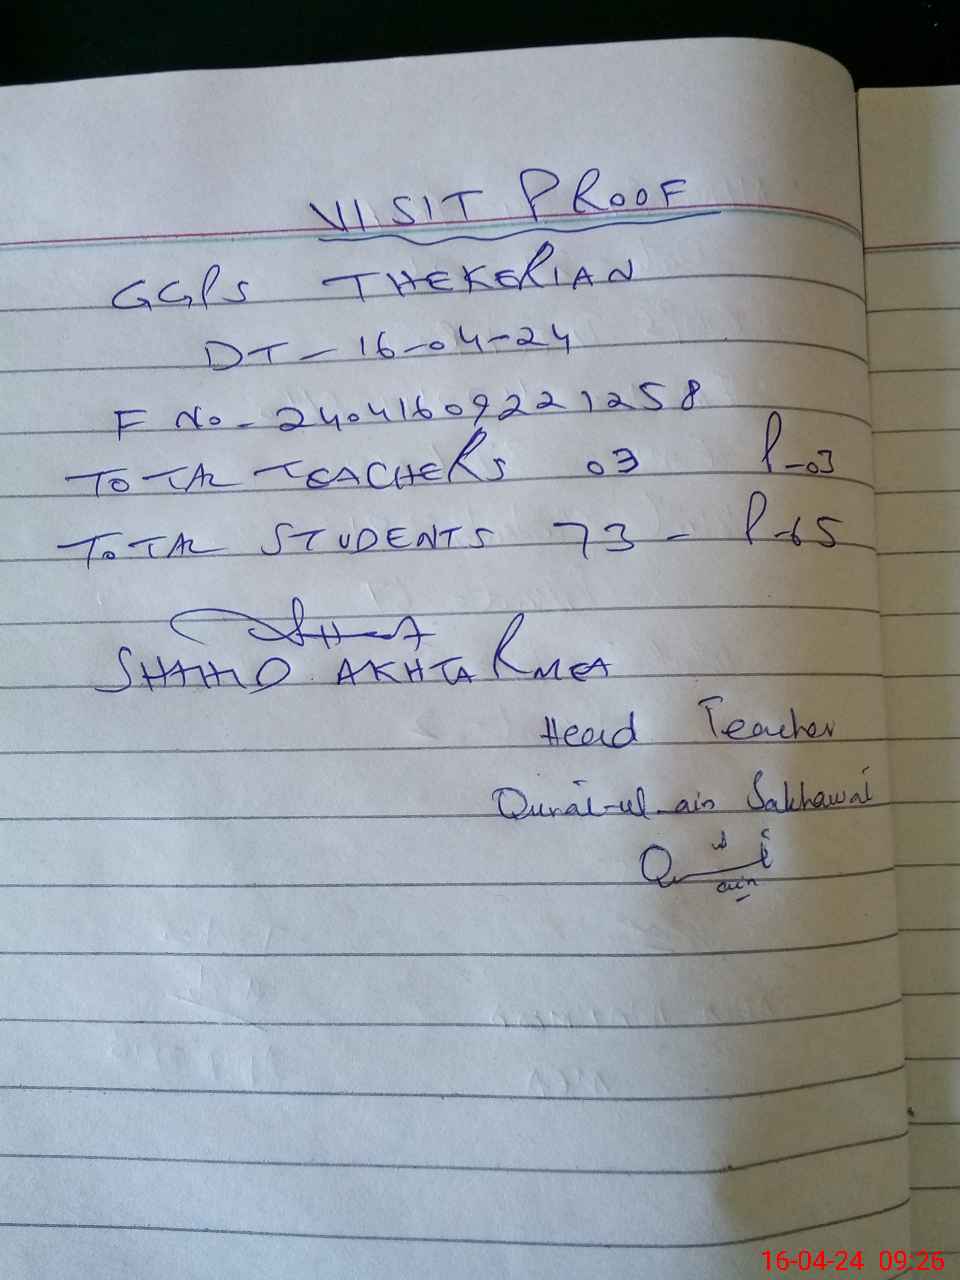 VISIT PROOF
GGPS THEKERIAN
DT - 16-04-24
F No - 240416092221258
TOTAL TEACHERS 03 P-03
TOTAL STUDENTS 73 - P-65
SHAHID AKHTAR MEA
Head Teacher
Qurat-ul-ain Sakhawat
16-04-24 09:26